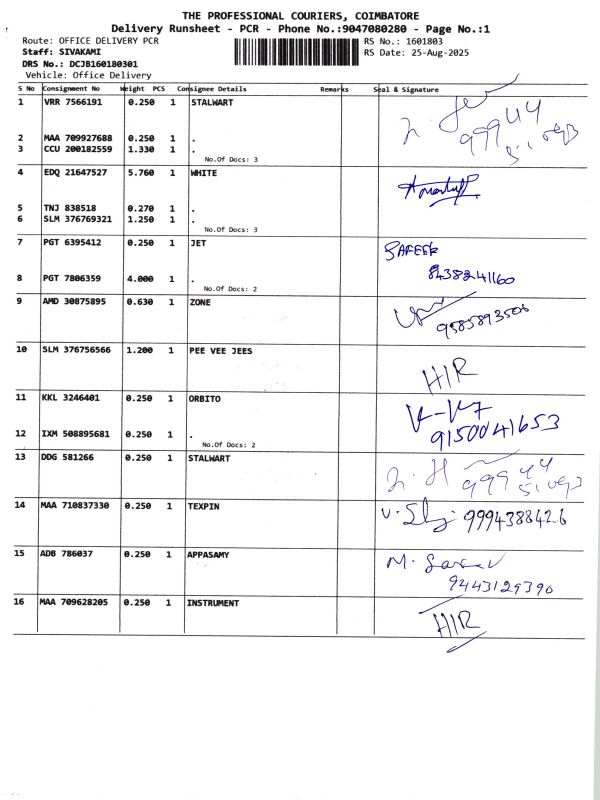 THE PROFESSIONAL COURIERS, COIMBATORE
Delivery Runsheet - PCR - Phone No.:9047080280 - Page No.:1
Route: OFFICE DELIVERY PCR
RS No.: 1601803
Staff: SIVAKAMI
RS Date: 25-Aug-2025
DRS No.: DCJB160180301
Vehicle: Office Delivery
S No Consignment No Weight PCS Consignee Details Remarks Seal & Signature
1 VRR 7566191 0.250 1 STALWART
99944
2 MAA 709927688 0.250 1 .
3 CCU 200182559 1.330 1 .
No.Of Docs: 3
4 EDQ 21647527 5.760 1 WHITE
5 TNJ 838518 0.270 1 .
6 SLM 376769321 1.250 1 .
No.Of Docs: 3
7 PGT 6395412 0.250 1 JET
8438241160
8 PGT 7806359 4.000 1 .
No.Of Docs: 2
9 AMD 30875895 0.630 1 ZONE
9585893506
10 SLM 376756566 1.200 1 PEE VEE JEES
HIR
11 KKL 3246401 0.250 1 ORBITO
9150041653
12 IXM 508895681 0.250 1 .
No.Of Docs: 2
13 DDG 581266 0.250 1 STALWART
99944
14 MAA 710837330 0.250 1 TEXPIN
9994388426
15 ADB 786037 0.250 1 APPASAMY
9443129390
16 MAA 709628205 0.250 1 INSTRUMENT
HIR